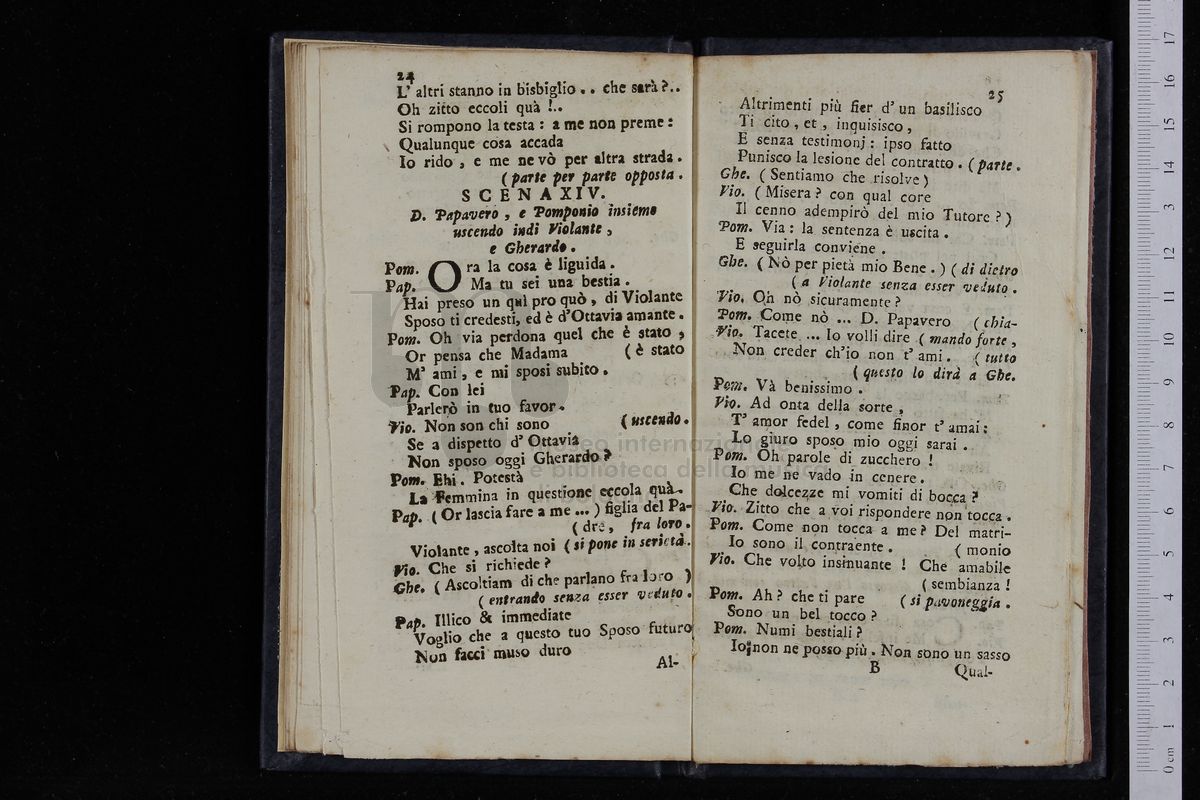 24
L' altri stanno in bisbiglio . . che sarà ? . .
Oh zitto eccoli quà ! . .
Si rompono la testa : a me non preme :
Qualunque cosa accada
Io rido , e me ne vò per altra strada .
( parte per parte opposta .
SCENA XIV.
D. Papavero , e Pomponio insieme
uscendo indi Violante ,
e Gherardo .
Pom. Ora la cosa è liguida .
Pap. Ma tu sei una bestia .
Hai preso un qui pro quò , di Violante
Sposo ti credesti, ed è d'Ottavia amante .
Pom. Oh via perdona quel che è stato ,
Or pensa che Madama ( è stato
M' ami , e mi sposi subito .
Pap. Con lei
Parlerò in tuo favor .
Vio. Non son chi sono ( uscendo .
Se a dispetto d' Ottavia
Non sposo oggi Gherardo ?
Pom. Ehi . Potestà
La Femmina in questione eccola quà .
Pap. ( Or lascia fare a me ... ) figlia del Pa-
( dre , fra loro .
Violante , ascolta noi ( si pone in serietà .
Vio. Che si richiede ?
Ghe. ( Ascoltiam di che parlano fra loro )
( entrando senza esser veduto .
Pap. Illico & immediate
Voglio che a questo tuo Sposo futuro
Non facci muso duro
Al-
25
Altrimenti più fier d' un basilisco
Ti cito , et , inquisisco ,
E senza testimonj : ipso fatto
Punisco la lesione del contratto . ( parte .
Ghe. ( Sentiamo che risolve )
Vio. ( Misera ? con qual core
Il cenno adempirò del mio Tutore ? )
Pom. Via : la sentenza è uscita .
E seguirla conviene .
Ghe. ( Nò per pietà mio Bene . ) ( di dietro
( a Violante senza esser veduto .
Vio. Oh nò sicuramente ?
Pom. Come nò ... D. Papavero ( chia-
Vio. Tacete ... Io volli dire ( mando forte ,
Non creder ch'io non t' ami . ( tutto
( questo lo dirà a Ghe.
Pom. Và benissimo .
Vio. Ad onta della sorte ,
T' amor fedel , come finor t' amai :
Lo giuro sposo mio oggi sarai .
Pom. Oh parole di zucchero !
Io me ne vado in cenere .
Che dolcezze mi vomiti di bocca ?
Vio. Zitto che a voi rispondere non tocca .
Pom. Come non tocca a me ? Del matri-
Io sono il contraente . ( monio
Vio. Che volto insinuante ! Che amabile
( sembianza !
Pom. Ah ? che ti pare ( si pavoneggia .
Sono un bel tocco ?
Pom. Numi bestiali ?
Io non ne posso più . Non sono un sasso
B Qual-